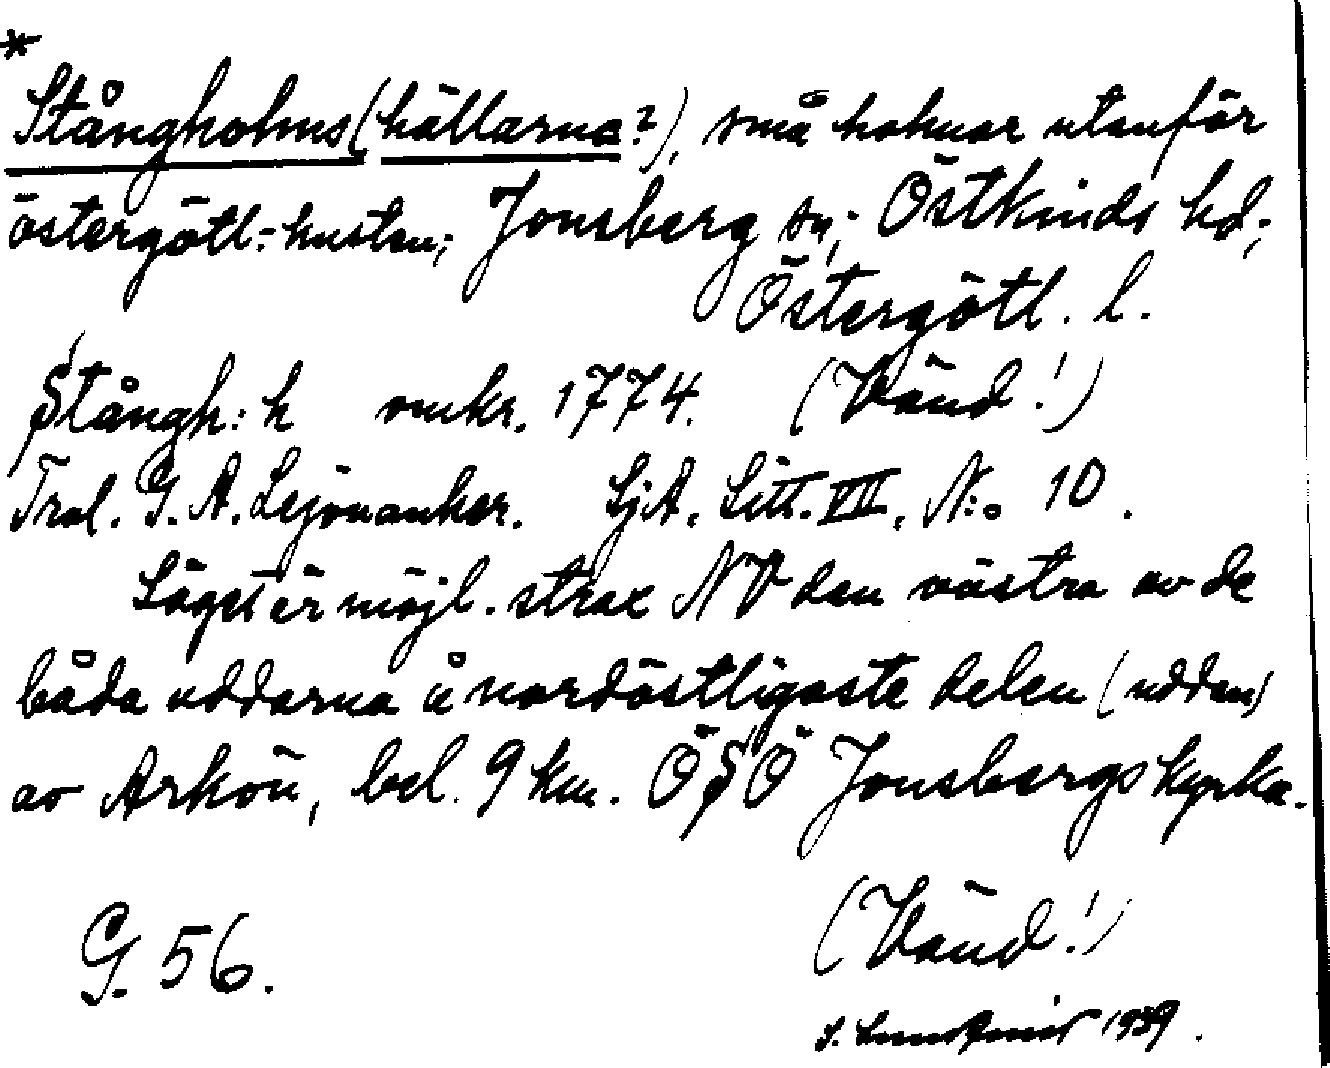 *
Stångholms(hällarna?), små holmar utanför
östergötl:kusten; Jonsberg sn; Östkinds hd;
Östergötl. l.
Stångh: h omkr. 1774. (Vänd!)
Trol. G. A. Lejonanker. SjA, Litt. VII, N:o 10.
Läget är möjl. strax NV den västra av de
båda uddarna å nordöstligaste delen (udden)
av Arkön, bel. 9 km. ÖSÖ Jonsbergs kyrka.
G. 56. (Vänd!)
S. 1939.